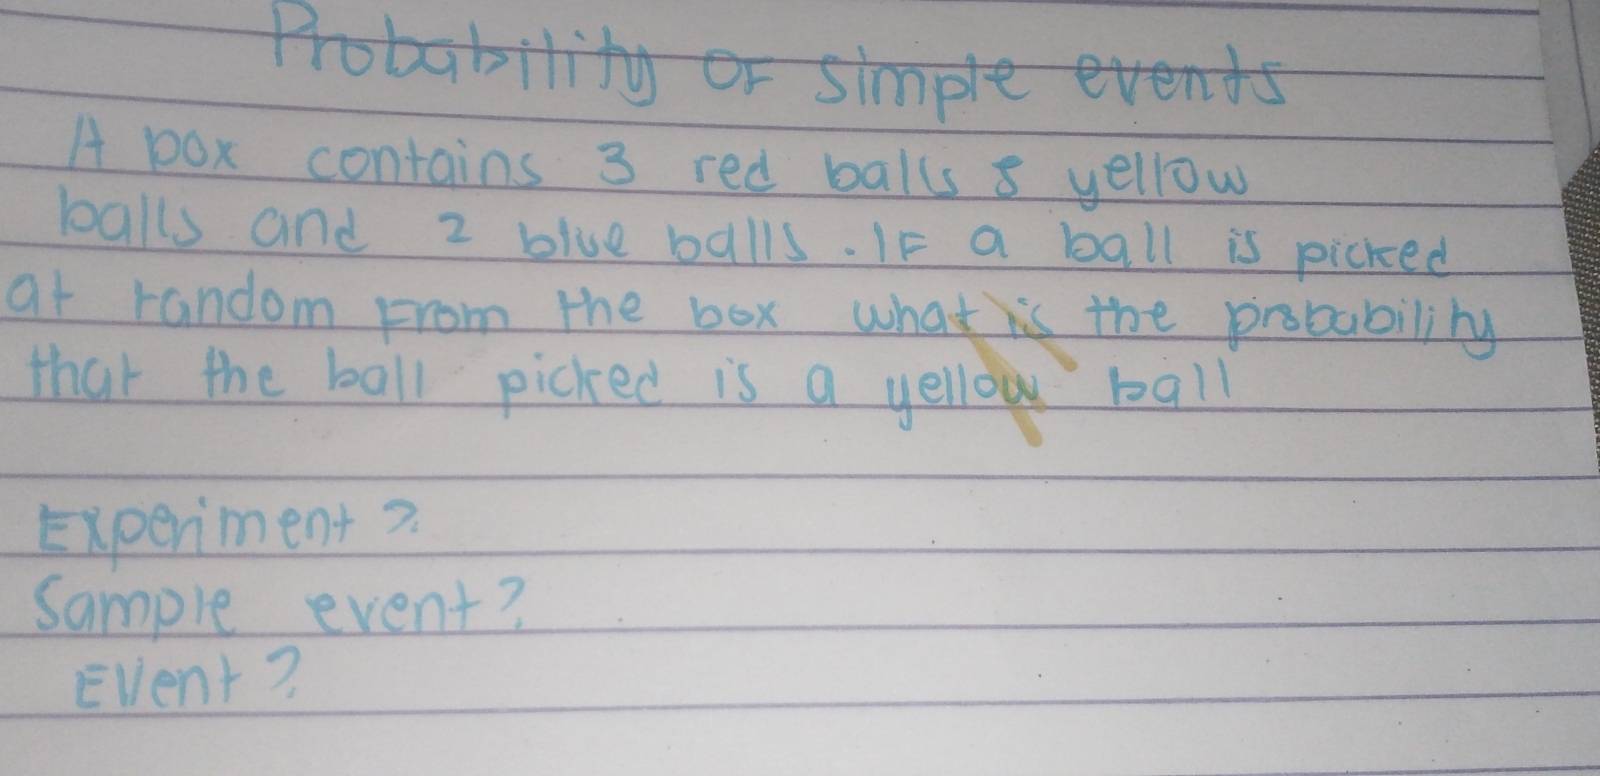 Probability of simple events
A box contains 3 red balls 5 yellow
balls and 2 blue balls. If a ball is picked
at random from the box what is the probability
that the ball picked is a yellow ball
Experiment?
Sample event?
Event?